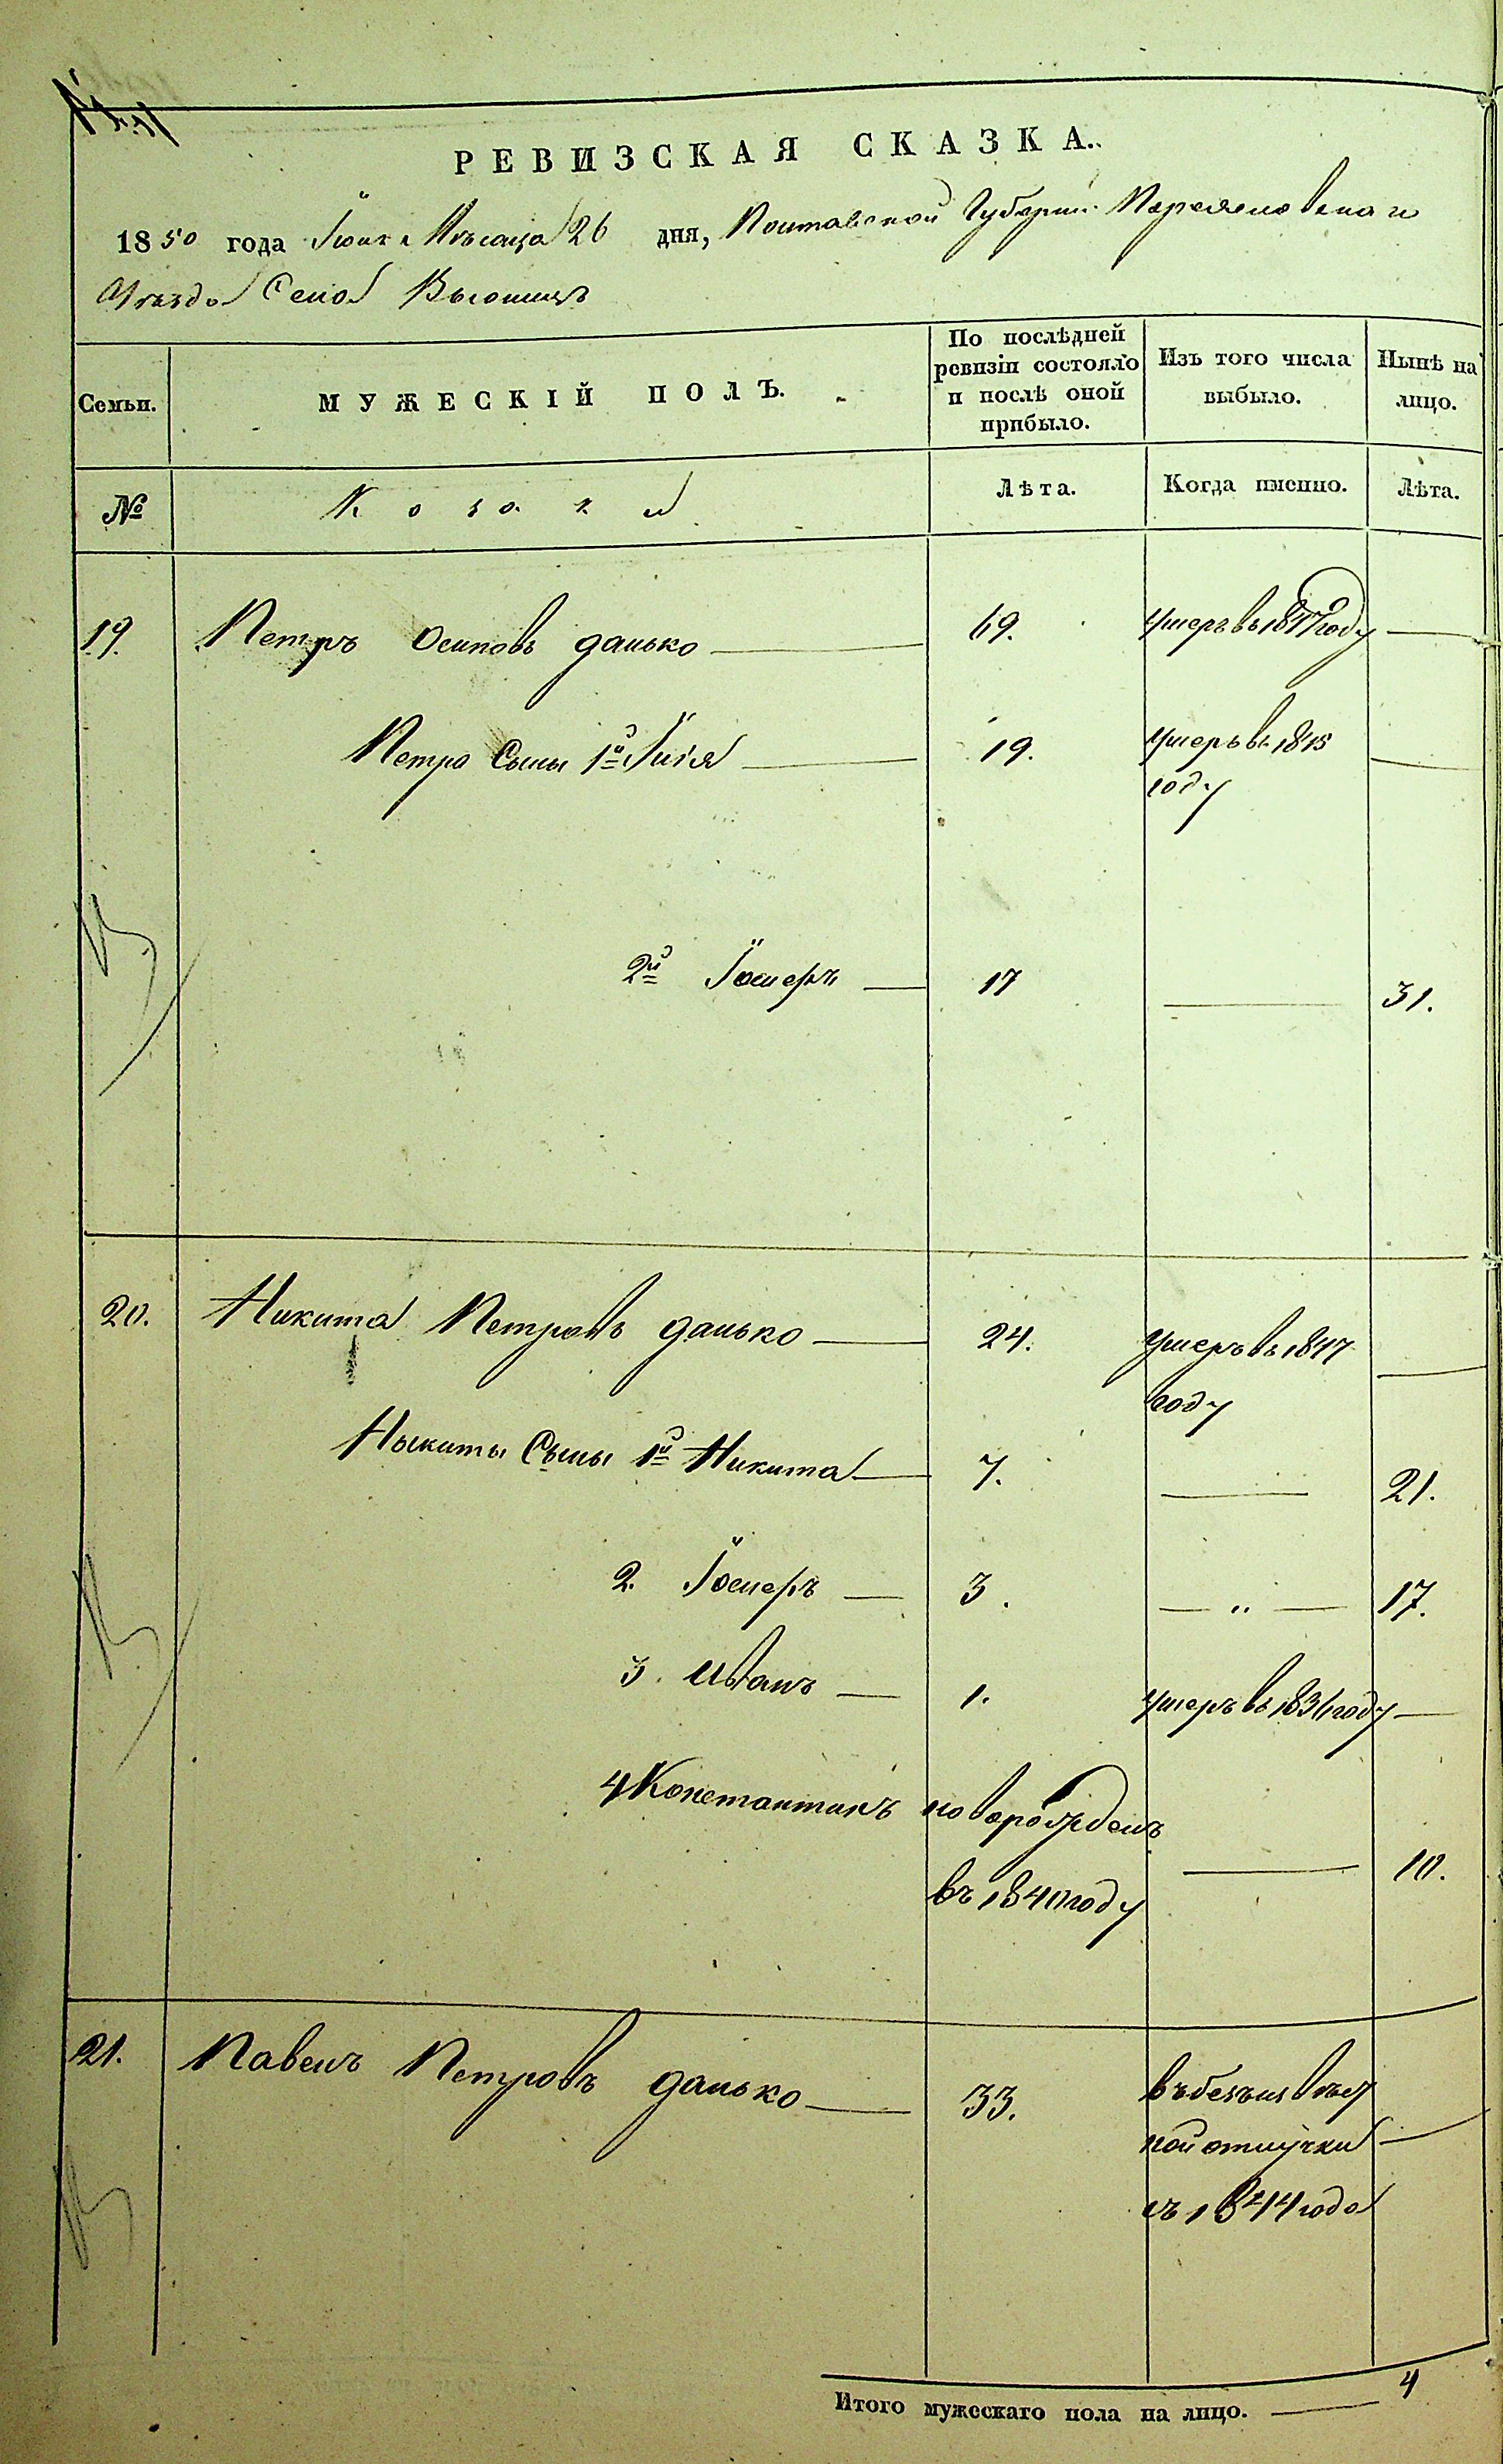 РЕВИЗСКАЯ СКАЗКА.
1850 года Іюня Мѣсяца 26 дня, Полтавской Губерніи Переяславскаго
Уѣзда Села
Семьи. МУЖЕСКІЙ ПОЛЪ. По послѣдней ревизіи состояло и послѣ оной прибыло. Изъ того числа выбыло. Нынѣ на лицо.
№ Козаки Лѣта. Когда имянно. Лѣта.
19. Петръ Осиповъ Данько 69. умеръ въ 1847 году
Петра Сыны 1й Илія 19. умеръ въ 1845
году
2й Іосифъ 17 31.
20. Никита Петровъ Данько 24. умеръ въ 1847
году
Никиты Сыны 1й Никита 7. 21.
2. Іосифъ 3. „ 17.
3. Иванъ 1. умеръ въ 1836 году
4 Константинъ новорожденъ
въ 1840 году 10.
21. Павелъ Петровъ Данько 33. въ безъизвѣст
ной отлучки
съ 1844 года
Итого мужескаго пола на лицо. 4